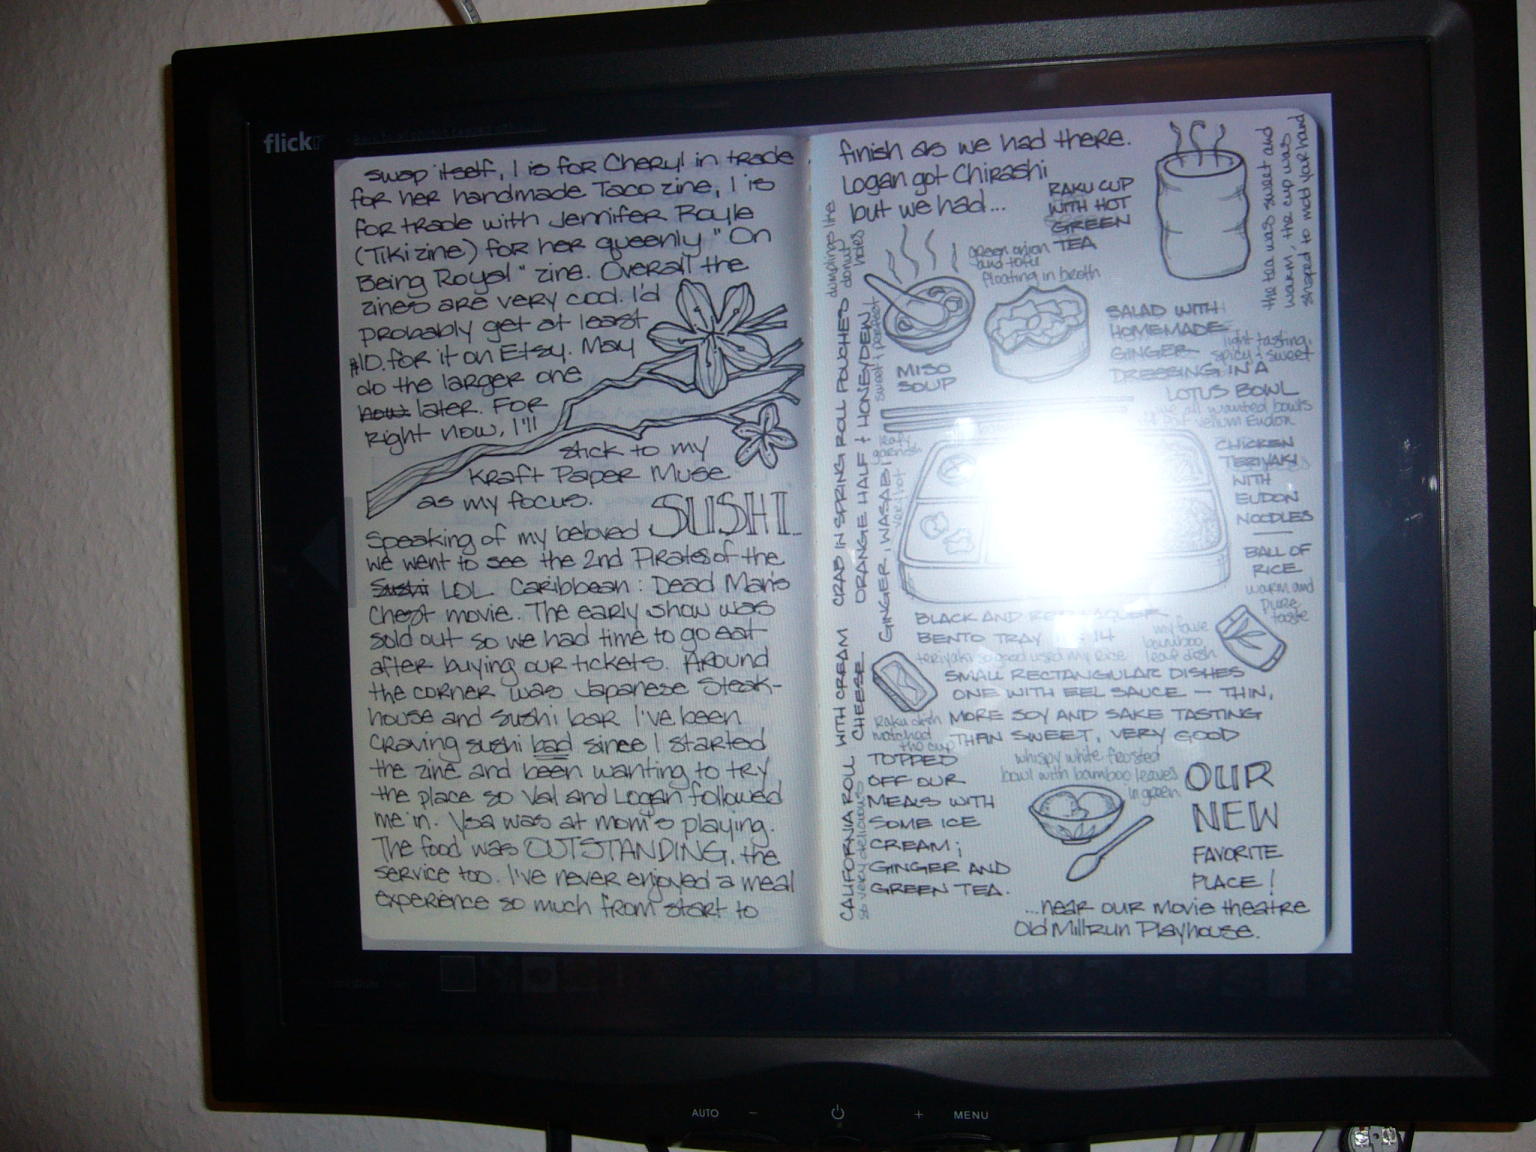 flickr
swap itself, 1 is for Cheryl in trade
for her handmade Taco zine, 1 is
for trade with Jennifer Royle
(Tiki zine) for her queenly "On
Being Royal" zine. Overall the
zines are very cool. I'd
probably get at least
$10. for it on Etsy. May
do the larger one
now later. For
right now, I'll
stick to my
Kraft Paper Muse
as my focus.
SUSHI
Speaking of my beloved
we went to see the 2nd Pirates of the
Sushi LOL Caribbean: Dead Man's
Chest movie. The early show was
sold out so we had time to go eat
after buying our tickets. Around
the corner was Japanese Steak-
house and Sushi bar I've been
craving sushi bad since I started
the zine and been wanting to try
the place so Val and Logan followed
me in. Vsa was at mom's playing.
The food was OUTSTANDING, the
service too. I've never enjoyed a meal
experience so much from start to
finish as we had there.
Logan got Chirashi
but we had...
RAKU CUP
WITH HOT
GREEN
TEA
the tea was sweet and
warm, the cup was
shaped to mold your hand
green onion
and tofu
floating in broth
MISO
SOUP
SALAD WITH
HOMEMADE
GINGER
DRESSING IN A
LOTUS BOWL
light tasting,
spicy + sweet
all wanted bowls
CHICKEN
TERIYAKI
WITH
EUDON
NOODLES
BALL OF
RICE
warm and
pure
taste
dumplings like
donut holes
CALIFORNIA ROLL WITH CREAM CRAB IN SPRING ROLL POUCHES
CHEESE ORANGE HALF + HONEYDEW
so very delicious
sweet + perfect
GINGER, WASABI
very hot
leafy
garnish
BLACK AND RED LACQUER
BENTO TRAY 14
teriyaki so good used my rice
my fave
bamboo
leaf dish
SMALL RECTANGULAR DISHES
ONE WITH EEL SAUCE — THIN,
MORE SOY AND SAKE TASTING
THAN SWEET, VERY GOOD
Raku dish
matched
the cup
TOPPED
OFF OUR
MEALS WITH
SOME ICE
CREAM;
GINGER AND
GREEN TEA.
whispy white frosted
bowl with bamboo leaves
in green
OUR
NEW
FAVORITE
PLACE!
...near our movie theatre
Old Millrun Playhouse.
AUTO - + MENU